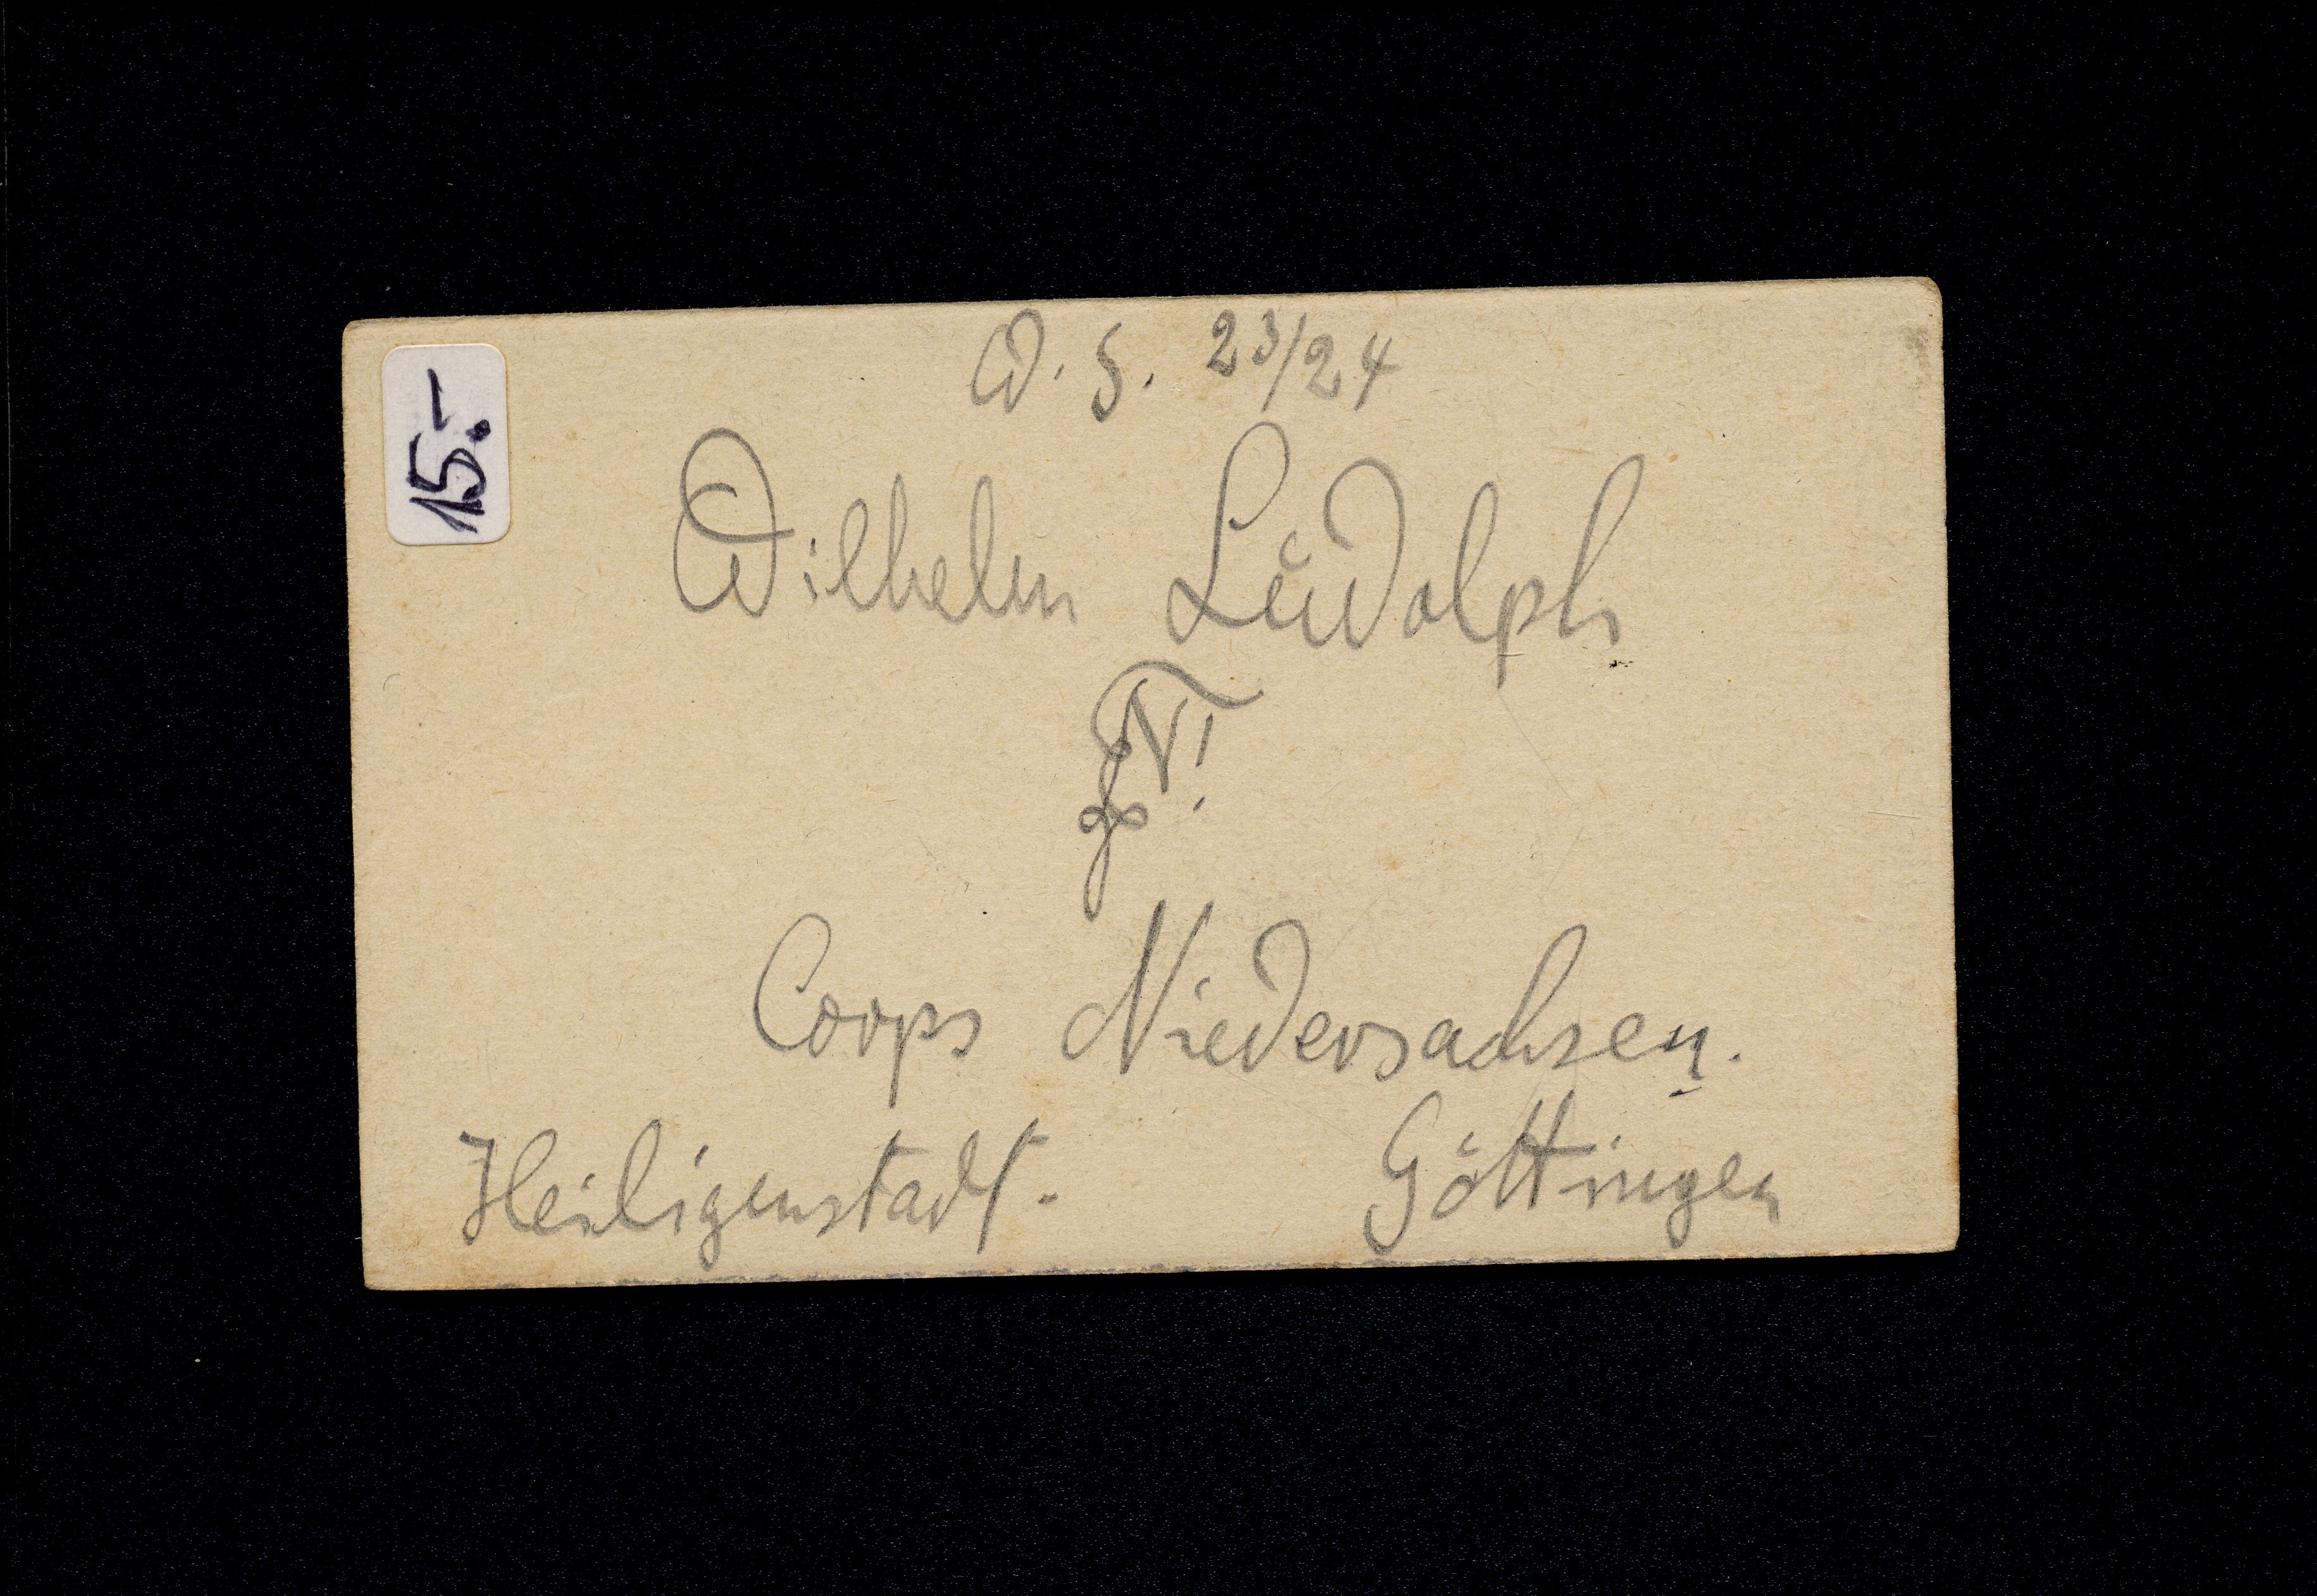 15.-
W. S. 23/24
Wilhelm Lŭdolph
Corps Niedersachsen.
Heiligenstadt.
Göttingen